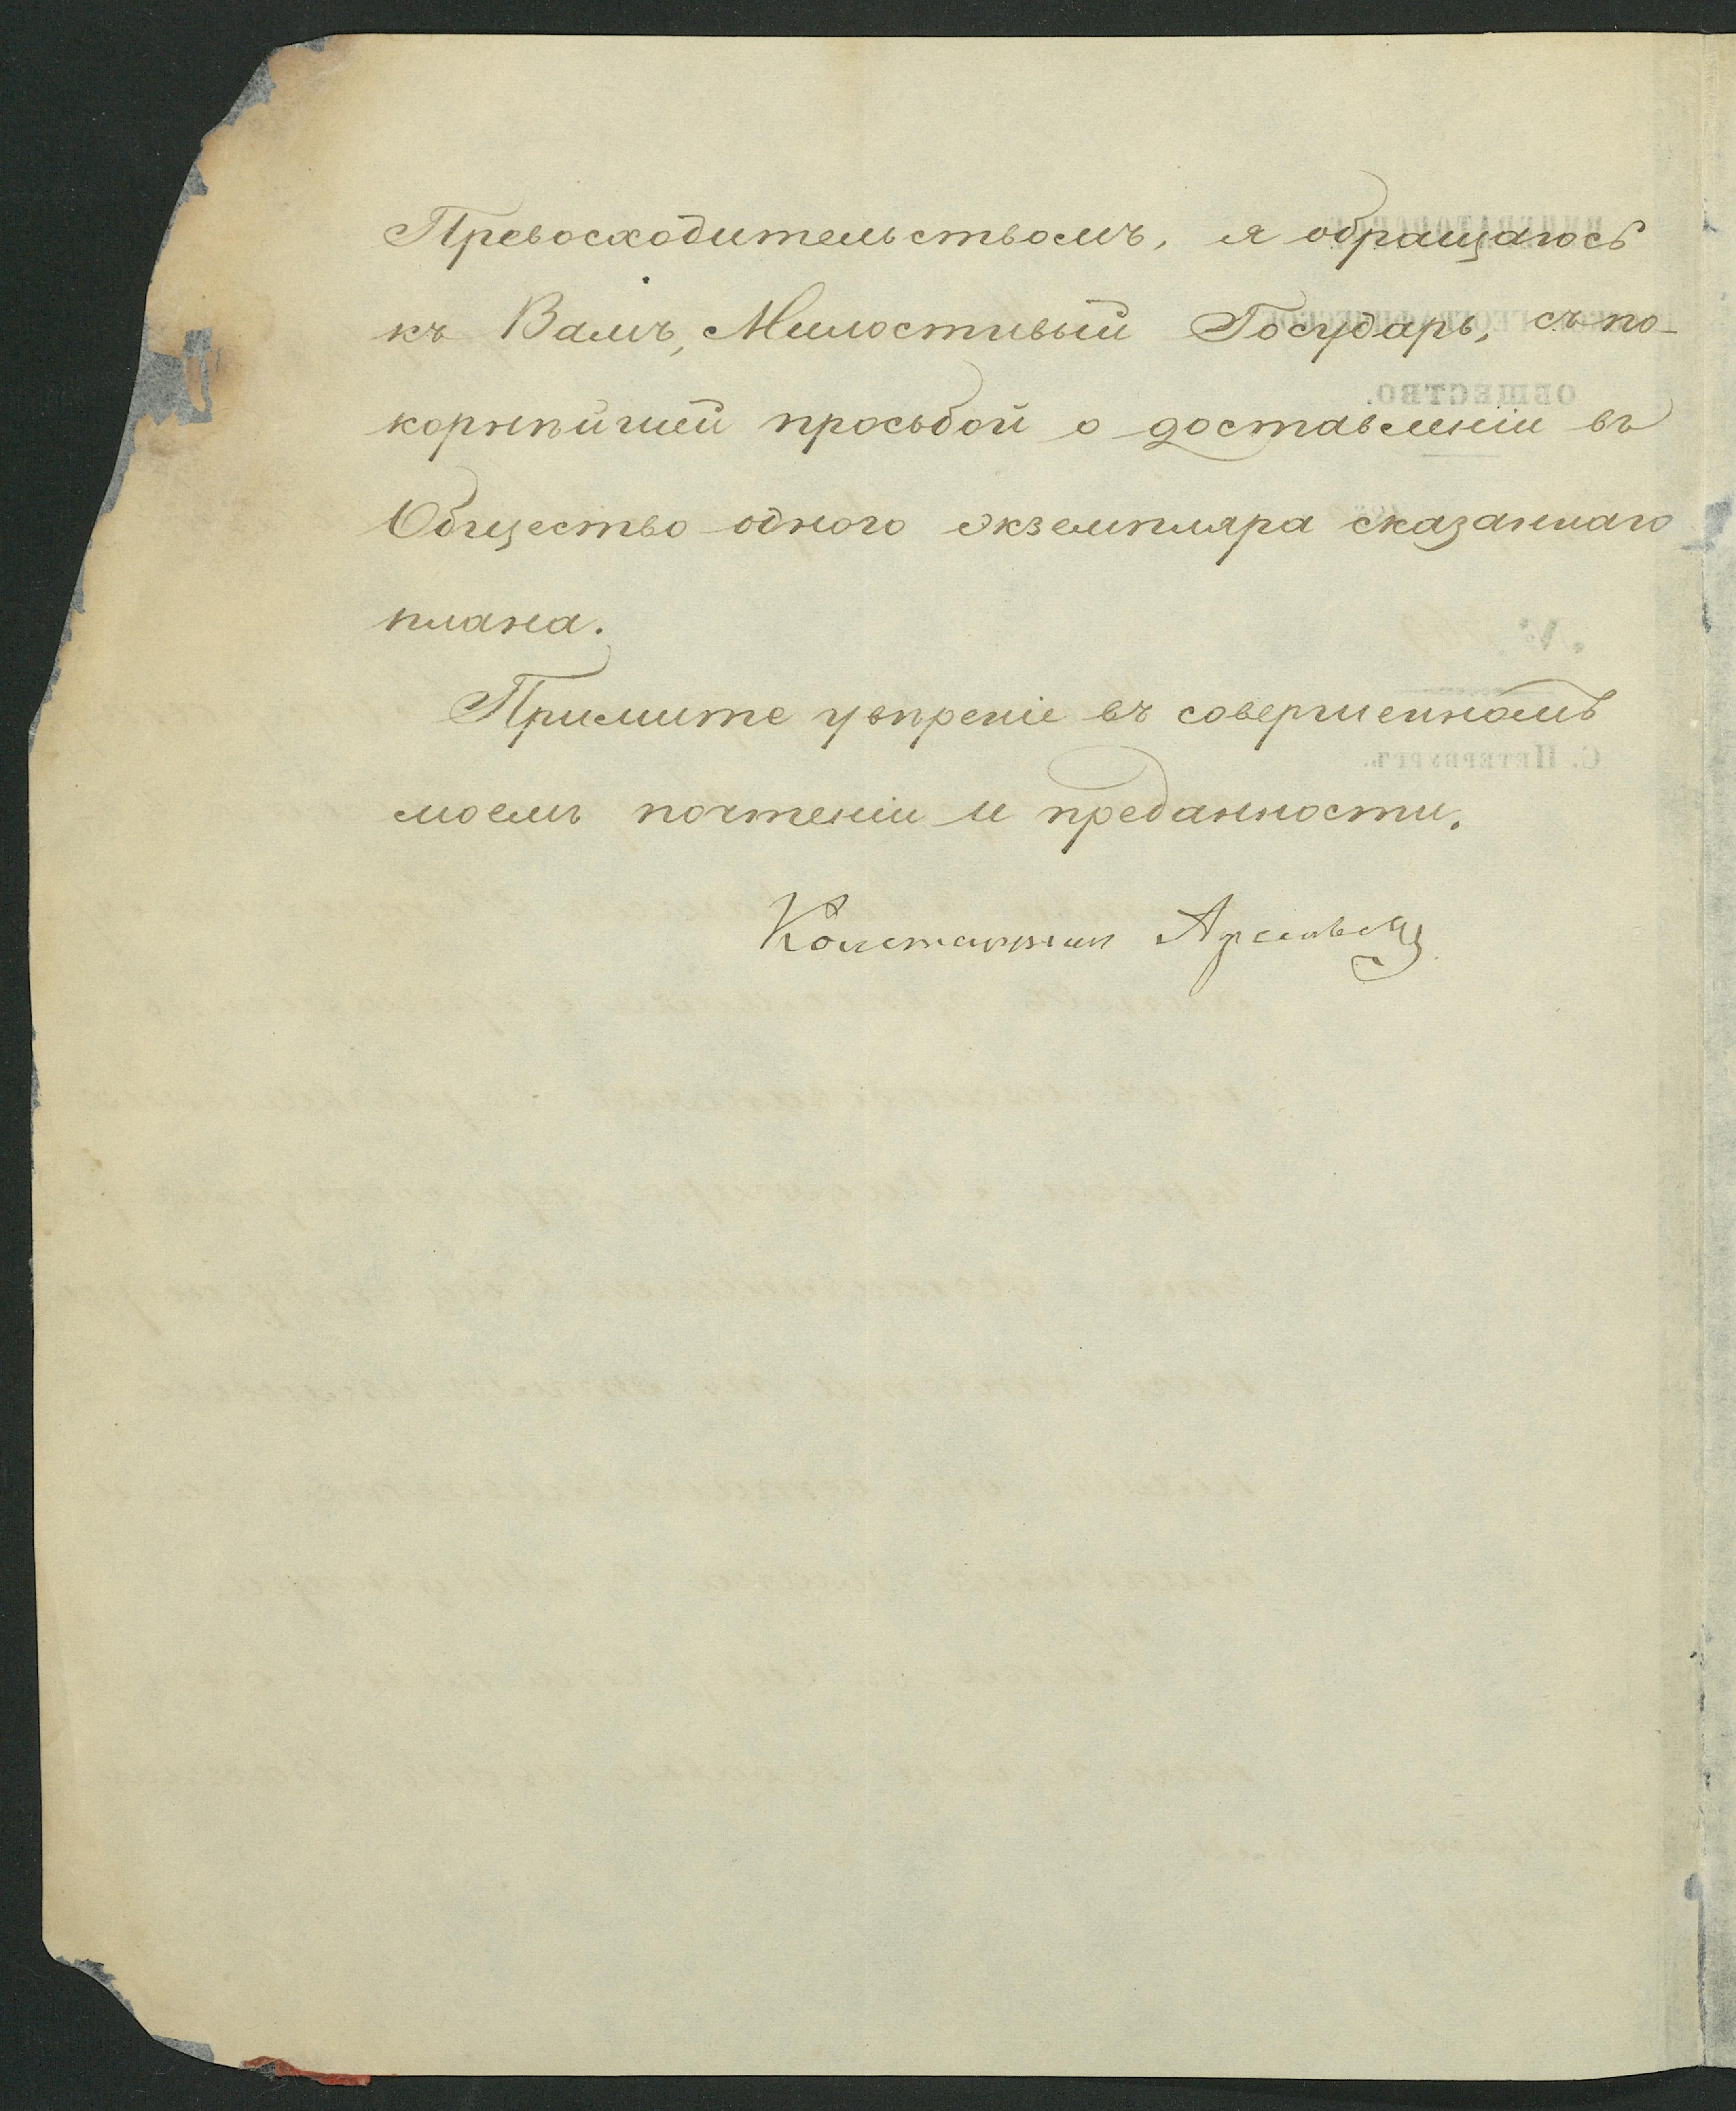 Превосходительствомъ, я обращаюсь
къ Вамъ, Милостивый Государь, съ по-
корнѣйшей просьбой о доставленіи въ
Общество одного экземпляра сказаннаго
плана.
Примите увѣреніе въ совершенномъ
моемъ почтеніи и преданности.
Константин
ОБЩЕСТВО.
№
С. Петербургъ.